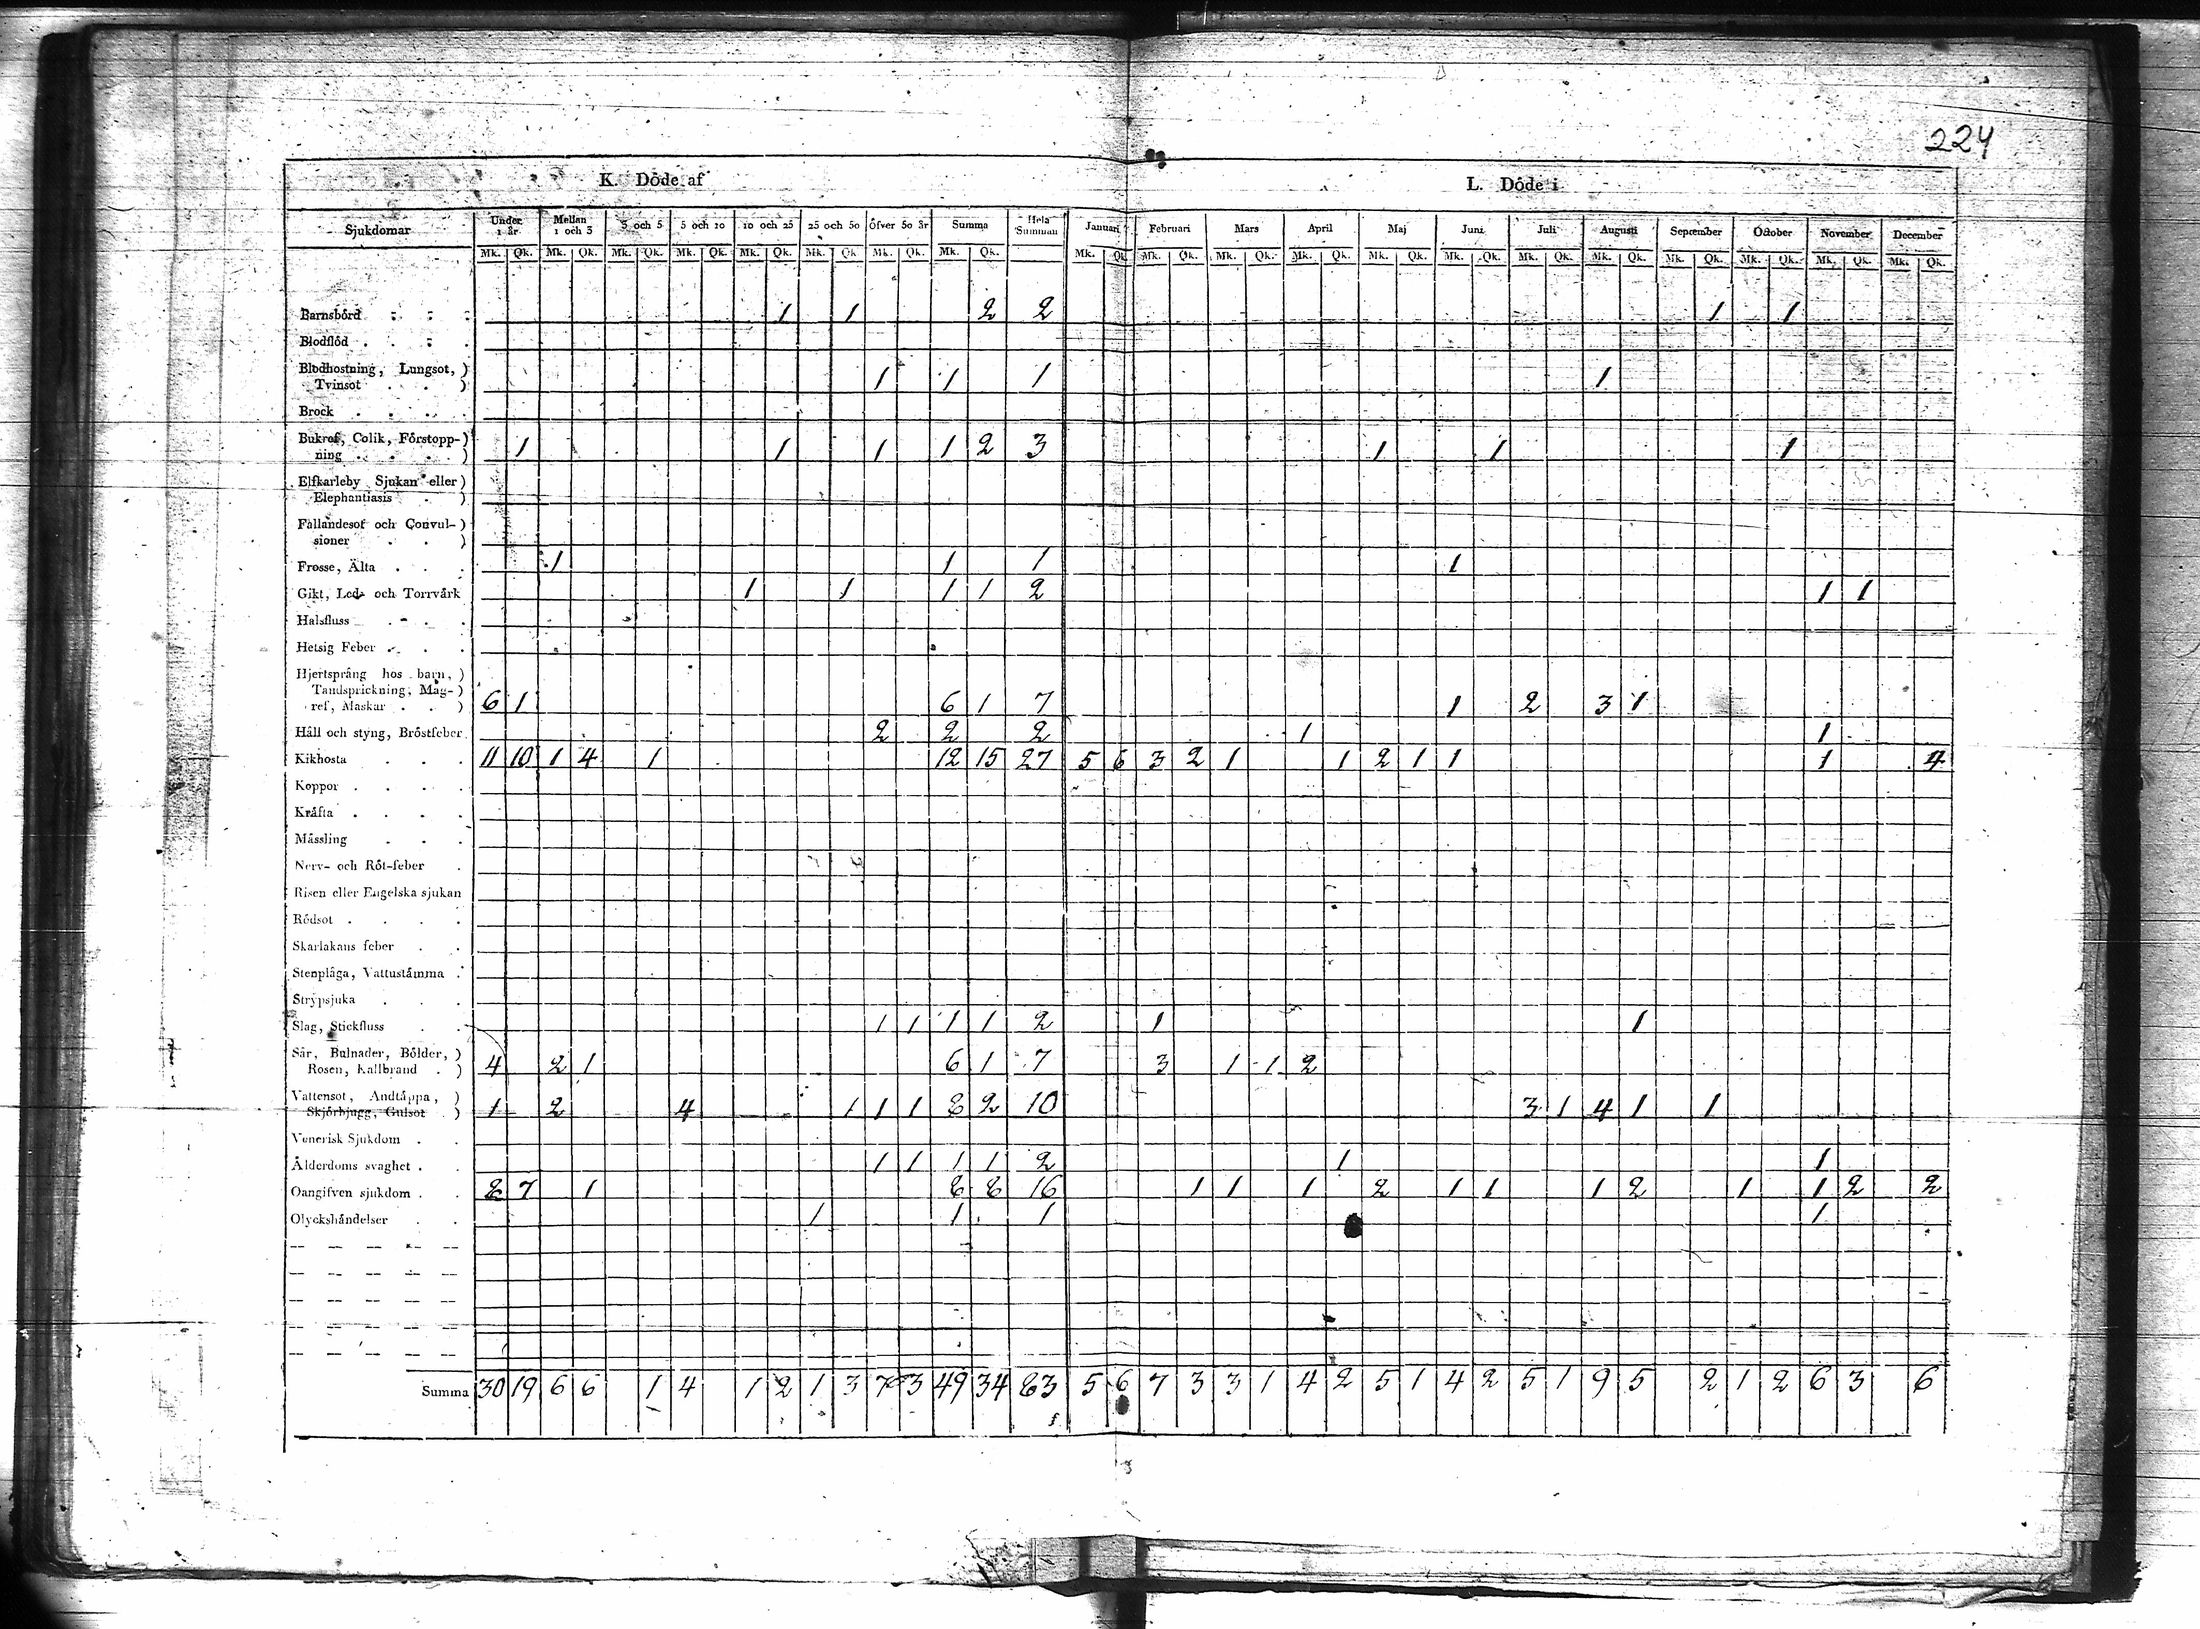 224
K. Döde af
L. Döde i
Sjukdomar Under 1 år Mellan 1 och 3 3 och 5 5 och 10 10 och 25 25 och 50 Öfver 50 år Summa Hela Summan Januari Februari Mars April Maj Juni Juli Augusti September October November December
Mk. Qk. Mk. Qk. Mk. Qk. Mk. Qk. Mk. Qk. Mk. Qk. Mk. Qk. Mk. Qk. Mk. Qk. Mk. Qk. Mk. Qk. Mk. Qk. Mk. Qk. Mk. Qk. Mk. Qk. Mk. Qk. Mk. Qk. Mk. Qk. Mk. Qk. Mk. Qk.
Barnsbörd 1 1 2 2 1 1
Blodflöd
Blodhostning, Lungsot,
Tvinsot 1 1 1 1
Brock
Bukref, Colik, Förstopp-
ning 1 1 1 1 2 3 1 1 1
Elfkarleby Sjukan eller
Elephantiasis
Fallandesot och Convul-
sioner
Frosse, Älta 1 1 1 1
Gikt, Led- och Torrvärk 1 1 1 1 2 1 1
Halsfluss
Hetsig Feber
Hjertsprång hos barn,
Tandsprickning, Mag-
ref, Maskar 6 1 6 1 7 1 2 3 1
Håll och styng, Bröstfeber 2 2 2 1 1
Kikhosta 11 10 1 4 1 12 15 27 5 6 3 2 1 1 2 1 1 1 4
Koppor
Kräfta
Mässling
Nerv- och Röt-feber
Risen eller Engelska sjukan
Rödsot
Skarlakans feber
Stenplåga, Vattustämma
Strypsjuka
Slag, Stickfluss 1 1 1 1 2 1 1
Sår, Bulnader, Bölder,
Rosen, Kallbrand 4 2 1 6 1 7 3 1 1 2
Vattensot, Andtäppa,
Skjörbjugg, Gulsot 1 2 4 1 1 1 8 2 10 3 1 4 1 1
Venerisk Sjukdom
Ålderdoms svaghet 1 1 1 1 2 1 1
Oangifven sjukdom 8 7 1 8 8 16 1 1 1 2 1 1 1 2 1 1 2 2
Olyckshändelser 1 1 1 1
Summa 30 19 6 6 1 4 1 2 1 3 7 3 49 34 83 5 6 7 3 3 1 4 2 5 1 4 2 5 1 9 5 2 1 2 6 3 6